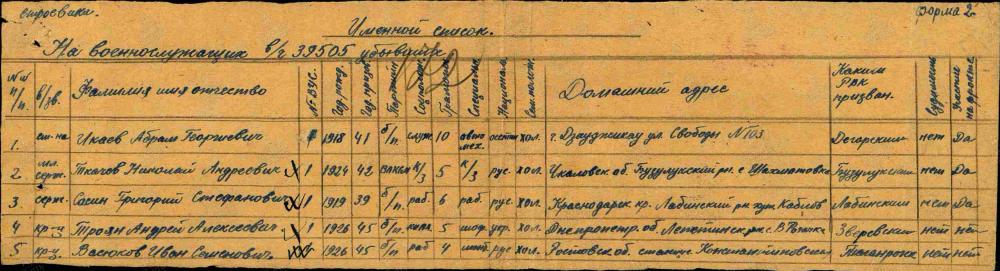 строевики.
форма 2
Именной список.
На военнослужащих в/ч 39505 убывших
№№ п/п. в/зв. Фамилия имя отчество № ВУС. Год рожд. Год призыв. Партийн. Социальн. Грамотн. Специальн. Национал. Сем. полож. Домашний адрес Каким Рвк призван. Судимость Участие на фронте
1. см-на Икаев Абрам Георгиевич 1918 41 б/п. служ. 10 авто мех. осетин хол. г. Дзауджикау ул. Свободы №103 Дегорским нет Да
2 мл. серж. Ткачев Николай Андреевич 1 1924 42 влксм к/з 5 к/з рус. хол. Чкаловск. об. Бузулукский рн. с Шахматовка Бузулукским нет Да
3 серж. Сасин Григорий Стефанович 1 1919 39 б/п. раб. 6 раб. рус. хол. Краснодарск кр. Лабинский рн хут. Каблов Лабинским нет Да
4 кр-ц Троян Андрей Алексеевич 1 1926 45 б/п. 5 укр. хол. Днепропетр. об. с. Зверевский нет нет
5 кр-ц Васюков Иван Семенович 1926 45 б/п. раб 4 рус хол. Ростовск об. станица Таганрогск нет нет